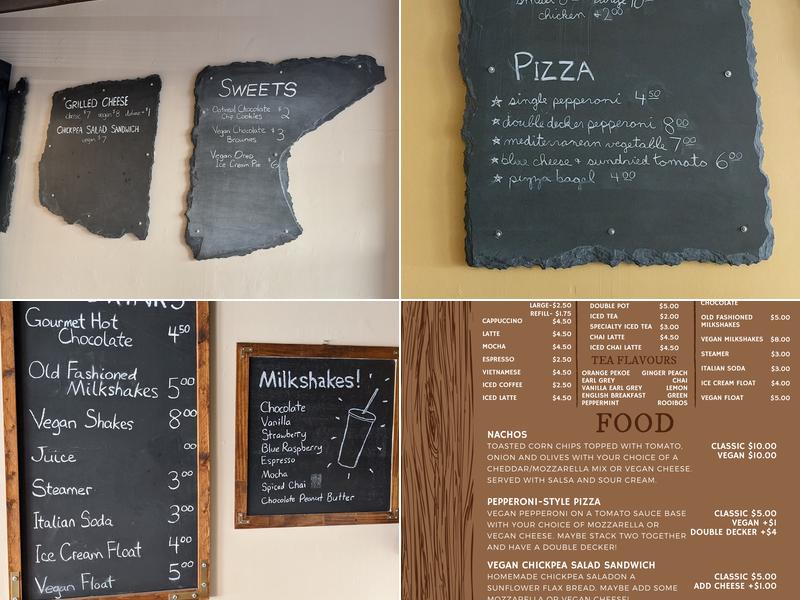 GRILLED CHEESE
cheese $7 vegan $8
CHICKPEA SALAD SANDWICH
vegan $7
SWEETS
Oatmeal Chocolate
Chip Cookies $2
Vegan Chocolate
Brownies $3
Vegan Oreo
Ice Cream Pie $6
chicken $2.00
PIZZA
single pepperoni 4.50
double decker pepperoni 8.00
mediterranean vegetable 7.00
blue cheese + sundried tomato 6.00
pizza bagel 4.00
DRINKS
Gourmet Hot
Chocolate 4.50
Old Fashioned
Milkshakes 5.00
Vegan Shakes 8.00
Juice
Steamer 3.00
Italian Soda 3.00
Ice Cream Float 4.00
Vegan Float 5.00
Milkshakes!
Chocolate
Vanilla
Strawberry
Blue Raspberry
Espresso
Mocha
Spiced Chai
Chocolate Peanut Butter
LARGE-$2.50
REFILL- $1.75
CAPPUCCINO $4.50
LATTE $4.50
MOCHA $4.50
ESPRESSO $2.50
VIETNAMESE $4.50
ICED COFFEE $2.50
ICED LATTE $4.50
DOUBLE POT $5.00
ICED TEA $2.00
SPECIALTY ICED TEA $3.00
CHAI LATTE $4.50
ICED CHAI LATTE $4.50
TEA FLAVOURS
ORANGE PEKOE GINGER PEACH
EARL GREY CHAI
VANILLA EARL GREY LEMON
ENGLISH BREAKFAST GREEN
PEPPERMINT ROOIBOS
CHOCOLATE
OLD FASHIONED $5.00
MILKSHAKES
VEGAN MILKSHAKES $8.00
STEAMER $3.00
ITALIAN SODA $3.00
ICE CREAM FLOAT $4.00
VEGAN FLOAT $5.00
FOOD
NACHOS
TOASTED CORN CHIPS TOPPED WITH TOMATO, CLASSIC $10.00
ONION AND OLIVES WITH YOUR CHOICE OF A VEGAN $10.00
CHEDDAR/MOZZARELLA MIX OR VEGAN CHEESE.
SERVED WITH SALSA AND SOUR CREAM.
PEPPERONI-STYLE PIZZA
VEGAN PEPPERONI ON A TOMATO SAUCE BASE CLASSIC $5.00
WITH YOUR CHOICE OF MOZZARELLA OR VEGAN +$1
VEGAN CHEESE. MAYBE STACK TWO TOGETHER DOUBLE DECKER +$4
AND HAVE A DOUBLE DECKER!
VEGAN CHICKPEA SALAD SANDWICH
HOMEMADE CHICKPEA SALADON A CLASSIC $5.00
SUNFLOWER FLAX BREAD. MAYBE ADD SOME ADD CHEESE +$1.00
MOZZARELLA OR VEGAN CHEESE!